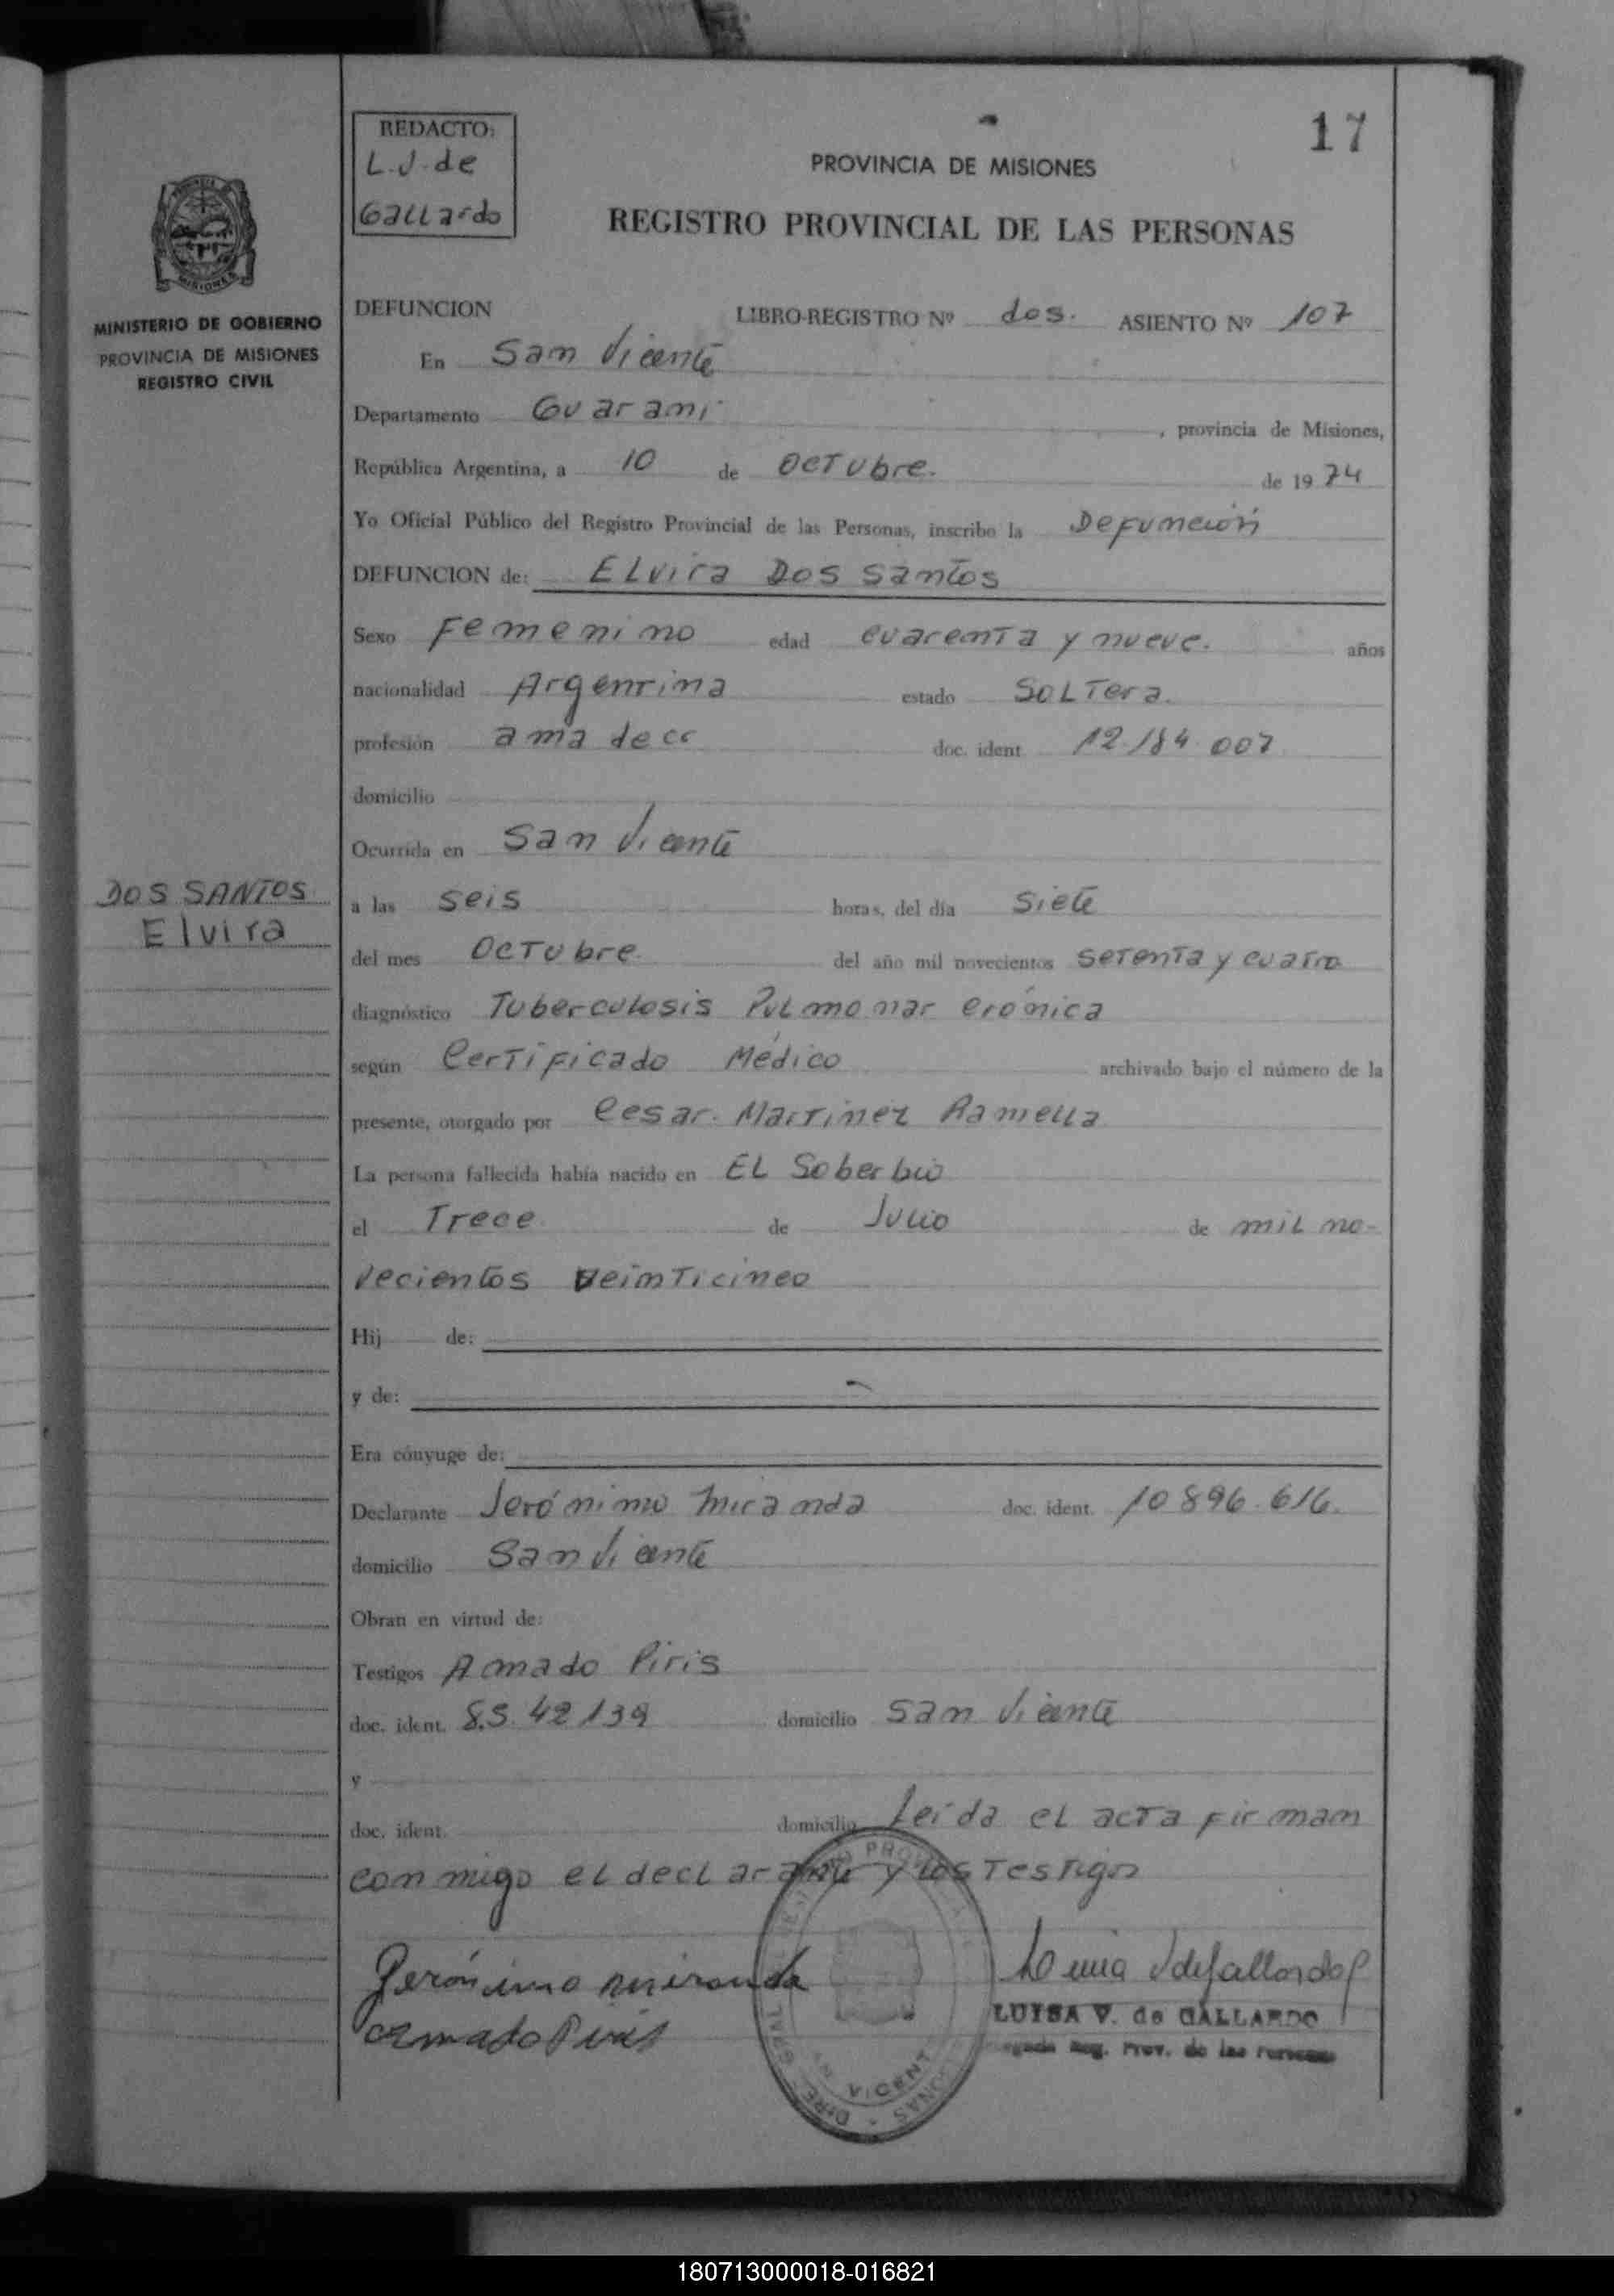 17
REDACTO:
L.J. de
Gallardo
PROVINCIA DE MISIONES
REGISTRO PROVINCIAL DE LAS PERSONAS
MISIONES
MINISTERIO DE GOBIERNO
PROVINCIA DE MISIONES
REGISTRO CIVIL
DEFUNCION LIBRO-REGISTRO Nº dos. ASIENTO Nº 107
En San Vicente
Departamento Guarani , provincia de Misiones,
República Argentina, a 10 de Octubre. de 1974
Yo Oficial Público del Registro Provincial de las Personas, inscribo la Defuncion
DEFUNCION de: Elvira Dos Santos
Sexo Femenino edad cuarenta y nueve. años
nacionalidad Argentina estado Soltera.
profesión ama de cc doc. ident 12.184.007
domicilio
Ocurrida en San Vicente
DOS SANTOS
Elvira
a las seis horas, del día siete
del mes Octubre. del año mil novecientos setenta y cuatro
diagnóstico Tuberculosis Pulmonar crónica
según Certificado Médico archivado bajo el número de la
presente, otorgado por Cesar. Martinez Ramella
La persona fallecida había nacido en El Soberbio
el Trece de Julio de mil no-
vecientos veinticinco
Hij de:
y de:
Era cónyuge de:
Declarante Jerónimo Miranda doc. ident. 10896.616.
domicilio San Vicente
Obran en virtud de:
Testigos Amado Piris
doc. ident. 8.5.42139 domicilio San Vicente
y
doc. ident. domicilio Leída el acta firman
conmigo el declarante y los Testigos
Gerónimo Miranda
Amado Piris
LUISA V. de GALLARDO
Reg. Prov. de las Personas
VICENT
180713000018-016821